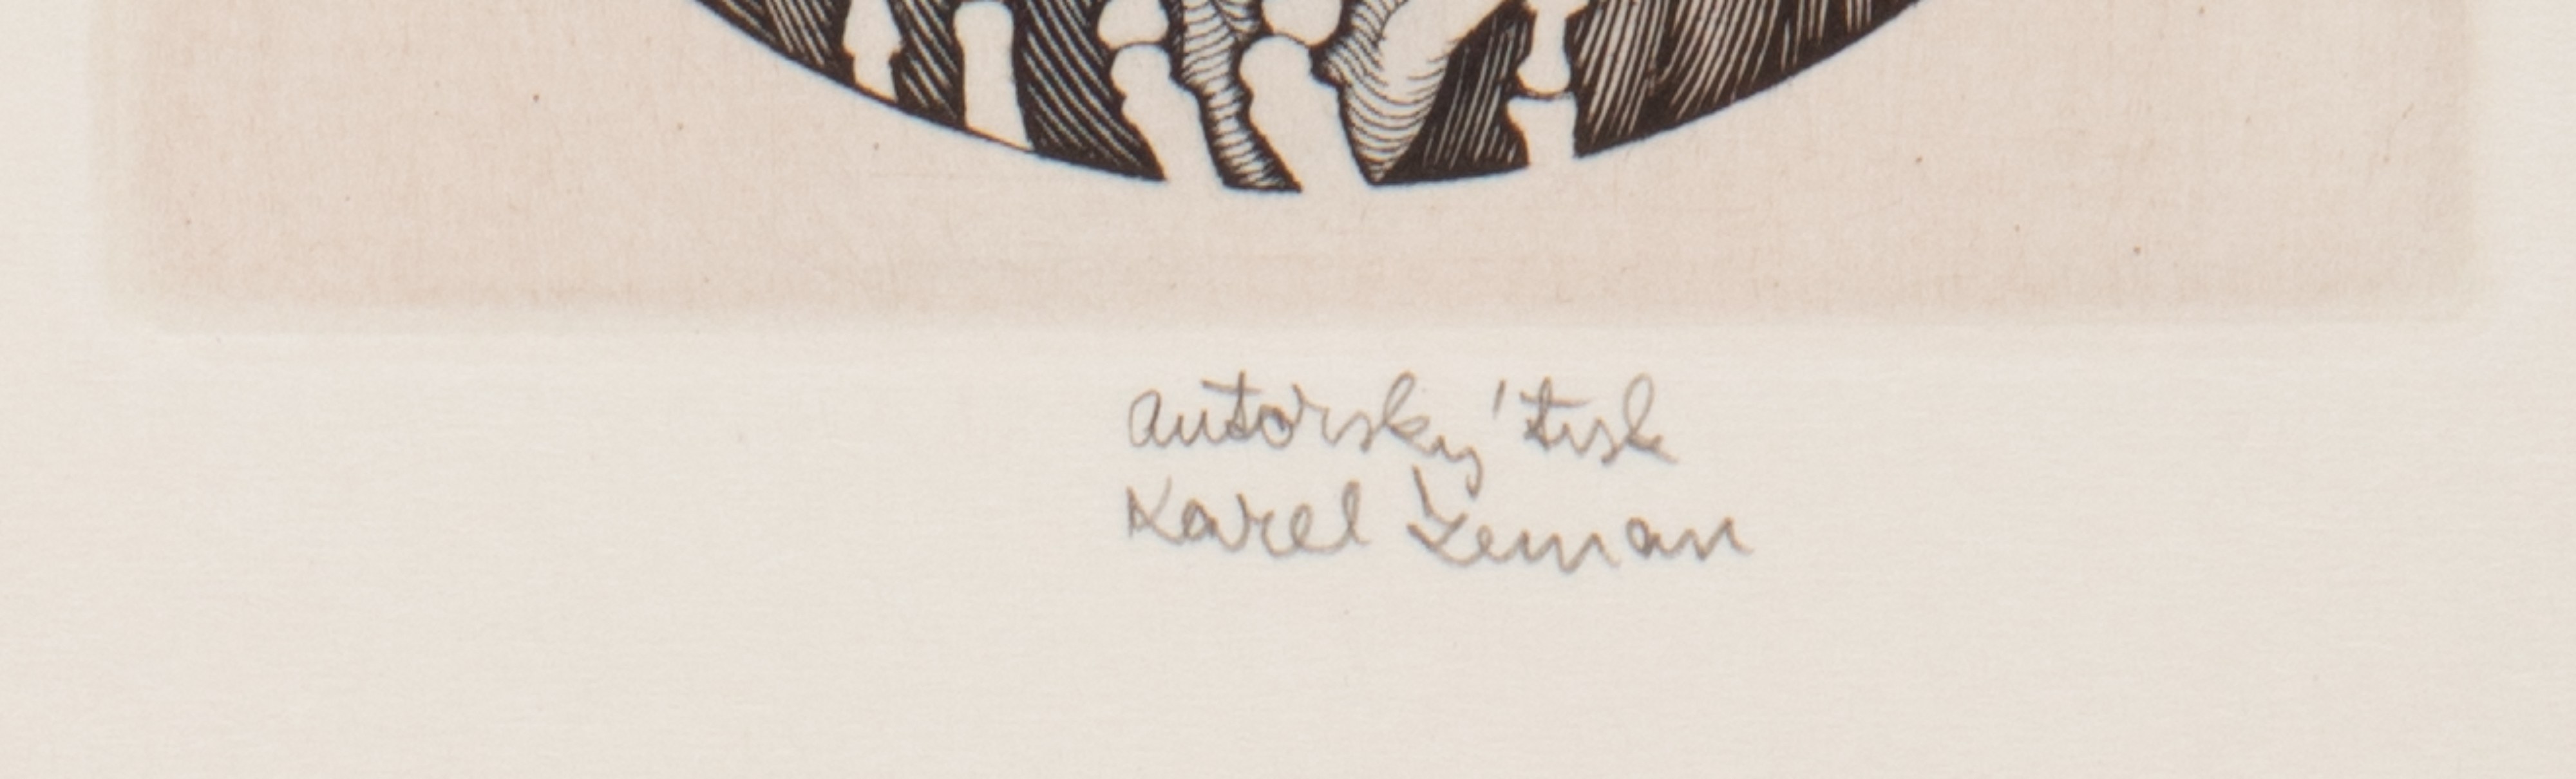 autorský tisk
Karel Zeman